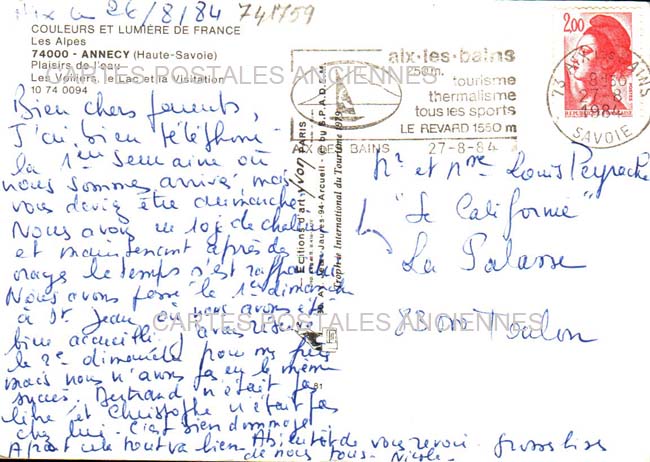 Aix le 26/8/84 741759
COULEURS ET LUMIÈRE DE FRANCE
Les Alpes
74000 - ANNECY (Haute-Savoie)
Plaisirs de l'eau
Les Voiliers, le Lac et la Visitation
10 74 0094
CARTES POSTALES ANCIENNES
Bien chers parents,
J'ai bien téléphoné
la 1ère semaine où
nous sommes arrivés mais
vous deviez être au dimanche
Nous avons eu 10j de chaleur
et maintenant après de
orage le temps s'est
Nous avons passé le 1er dimanche
à St Jean où nous avons été
bien accueillis. J'avais
le 2e dimanche pour mes
mais nous n'avons pas eu le même
succès. Bertrand n'était pas
libre et Christophe n'était pas
chez lui. C'est bien dommage!
A part cela tout va bien. A bientôt de vous revoir. Grosses bises
de nous tous - Nicole
Editions d'art yvon PARIS
Arcueil by S.P.A.D.E.M.
Trophée International du Tourisme 1979
81
aix-les-bains
250m.
tourisme
thermalisme
tous les sports
LE REVARD 1550 m
AIX LES BAINS 27-8-84
2,00
73 AIX LES BAINS
8H30
27-8
1984
SAVOIE
Mr et Mme Louis Peyrache
"Le Californie"
La Palasse
83000 Toulon
CARTES POSTALES ANCIENNES